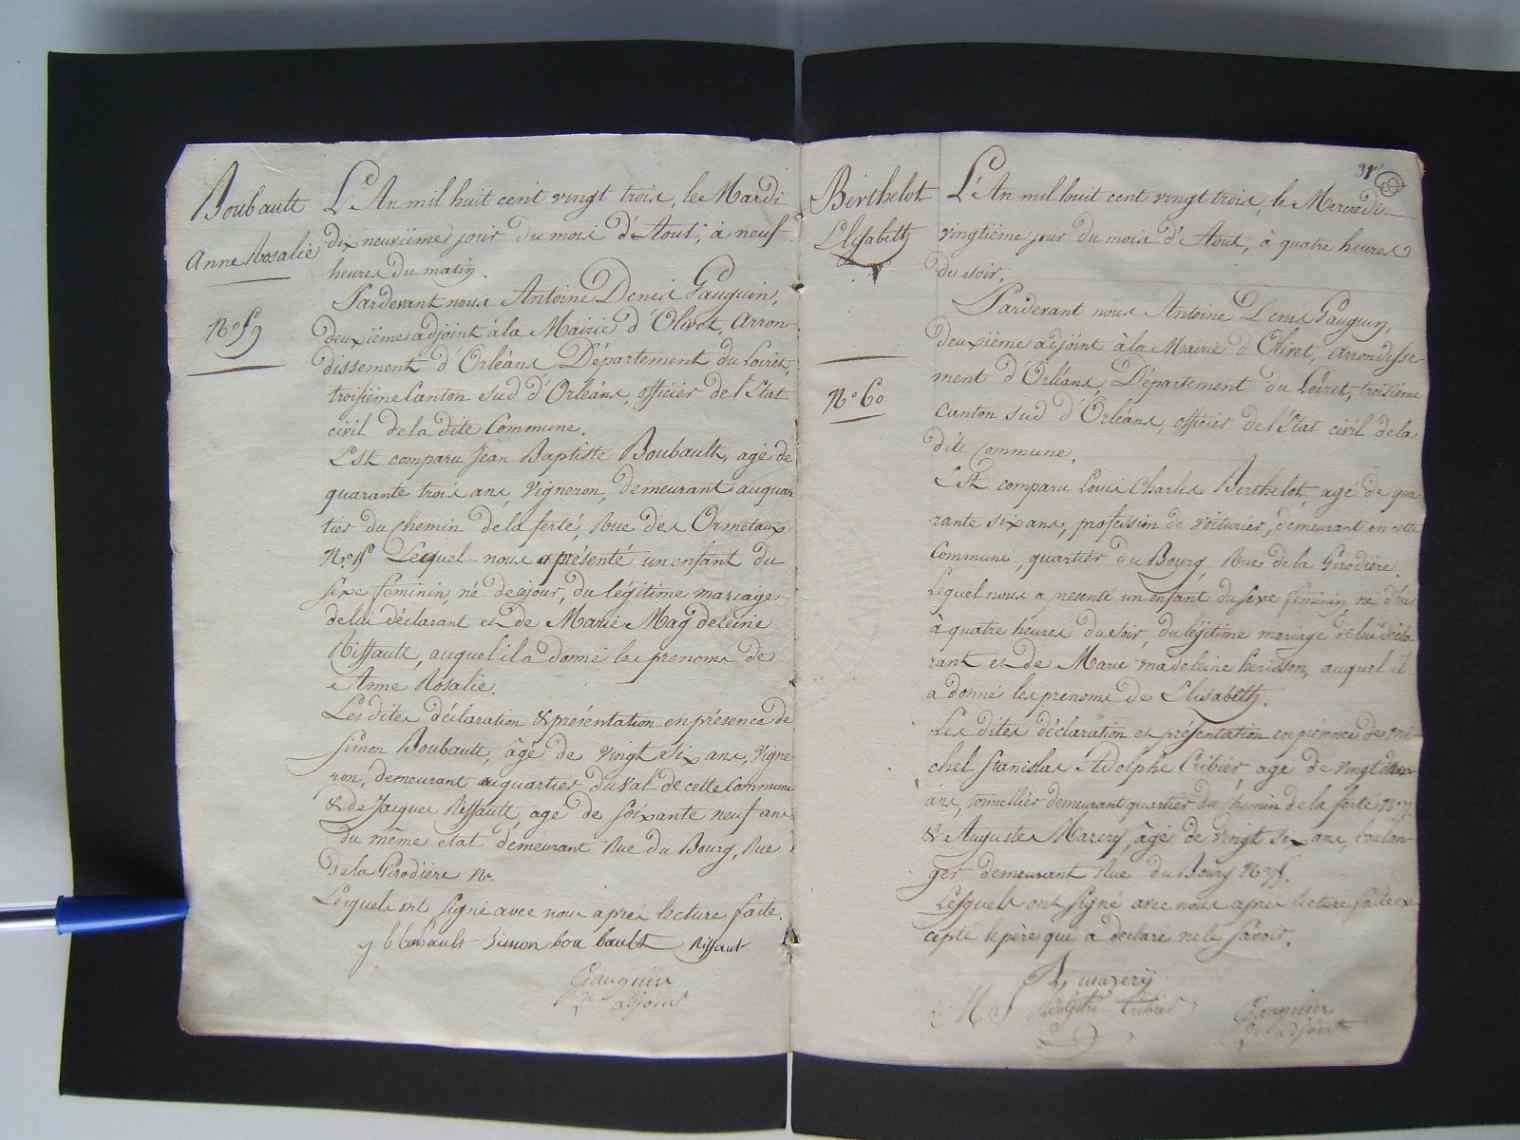 Boubault
Anne Rosalie
N.º 59
L'An mil huit cent vingt trois, le Mardi
dix neuvième jour du mois d'Aout, à neuf
heures du matin.
Pardevant nous Antoine Denis Gauguin,
deuxième adjoint à la Mairie d'Olivet, arron-
dissement d'Orléans Département du Loiret,
troisième Canton sud d'Orléans, officier de l'Etat
civil de la dite Commune.
Est comparu Jean Baptiste Boubault, agé de
quarante trois ans, Vigneron, demeurant au quar
tier du chemin de la ferté, Rue des Ormetaux
Lequel nous a présenté un enfant du
sexe féminin, né de ce jour, du légitime mariage
de lui déclarant et de Marie Magdeleine
Riffault, auquel il a donné les prenoms de
Anne Rosalie.
Les dites déclaration & présentation en présence de
Simon Boubault, âgé de vingt six ans, Vigne
ron, demeurant au quartier du val de cette Commune
& de Jacques Riffault agé de soixante neuf ans
du même etat demeurant Rue du Bourg, Rue
de la Gerodiere N.º
Lesquels ont signé avec nous après lecture faite.
Simon bou bault Riffaut
Gauguin
adjoint
31
Berthelot
Elisabeth
N.º 60
L'An mil huit cent vingt trois, le Mercredi
vingtième jour du mois d'Aout, à quatre heures
du soir.
Pardevant nous Antoine Denis Gauguin,
deuxième adjoint à la Mairie d'Olivet, arrondisse-
ment d'Orléans Département du Loiret, troisième
Canton sud d'Orléans, officier de l'Etat civil de la
dite Commune.
Est comparu Louis Charles Berthelot, agé de qua
rante six ans, profession de voiturier, demeurant en cette
Commune, quartier du Bourg Rue de la Gerodiere.
Lequel nous a presenté un enfant du sexe feminin né
à quatre heures du soir, du légitime mariage de lui décla
rant et de Marie madeleine herisson, auquel il
a donné les prenoms de Elisabeth.
Les dites déclaration et présentation en présence de Mi-
chel Stanislas Adolphe Cribier agé de vingt
ans, tonnellier demeurant quartier du chemin de la ferté
& Auguste Marery, âgé de vingt six ans, boulan-
ger demeurant Rue du Bourg
Lesquels ont signé avec nous apres lecture faite ex
cepté le père qui a declaré ne le savoir.
Gauguin
adjoint